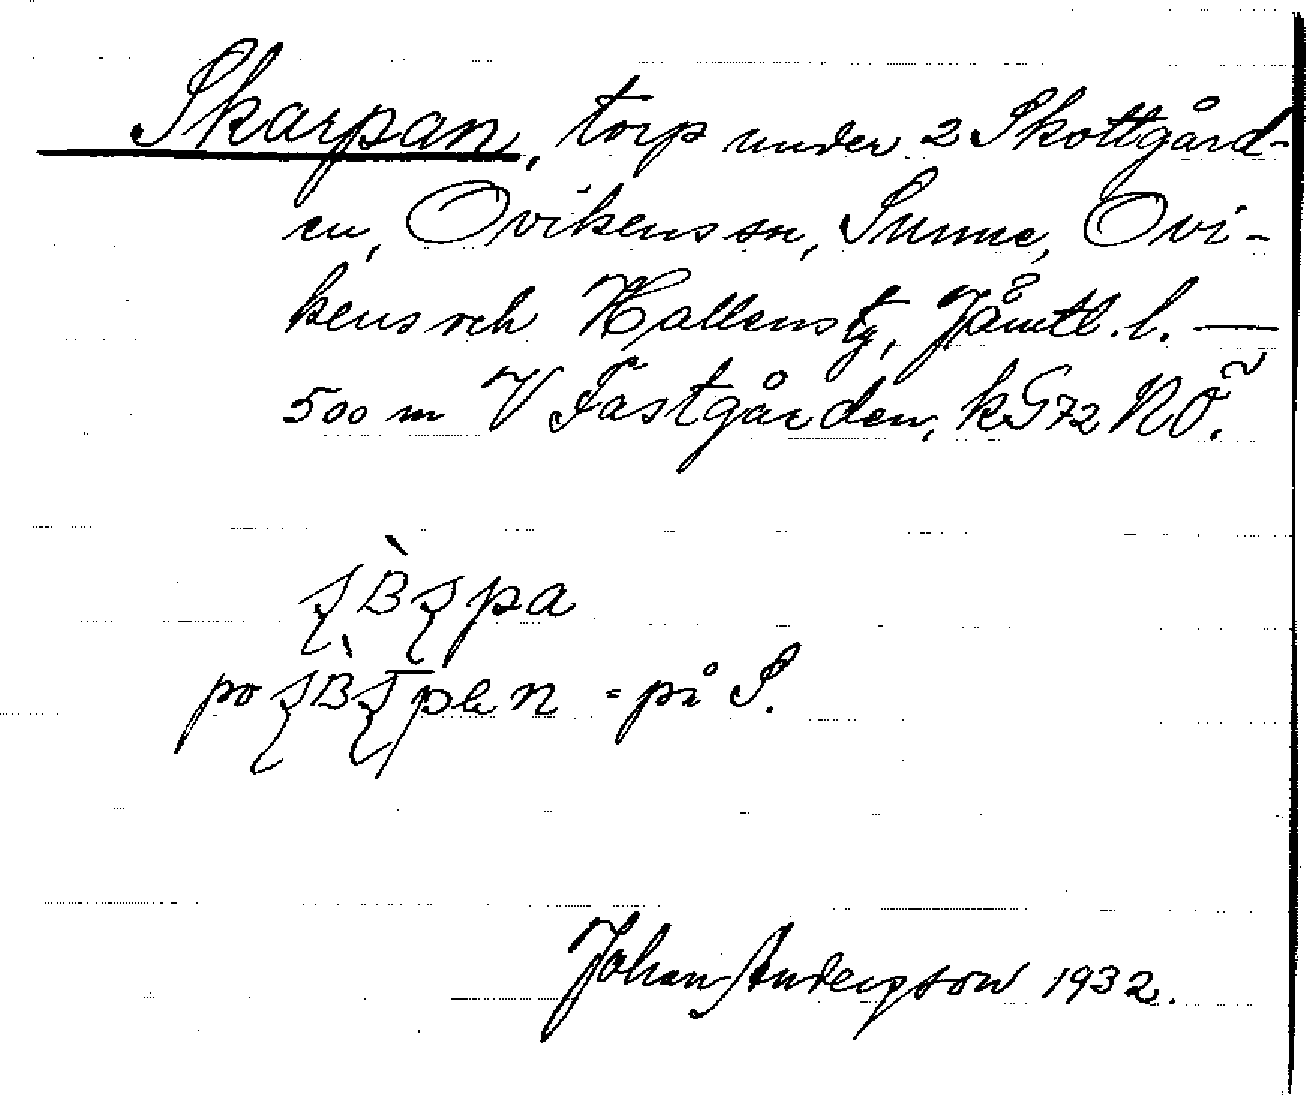 Skarpan, torp under 2 Skottgård-
en, Ovikens sn, Sunne, Ovi-
kens och Hallens tg, Jämtl. l. —
500 m V Fastgården, k G72 NÖ.
po = på S.
Johan Anderson 1932.